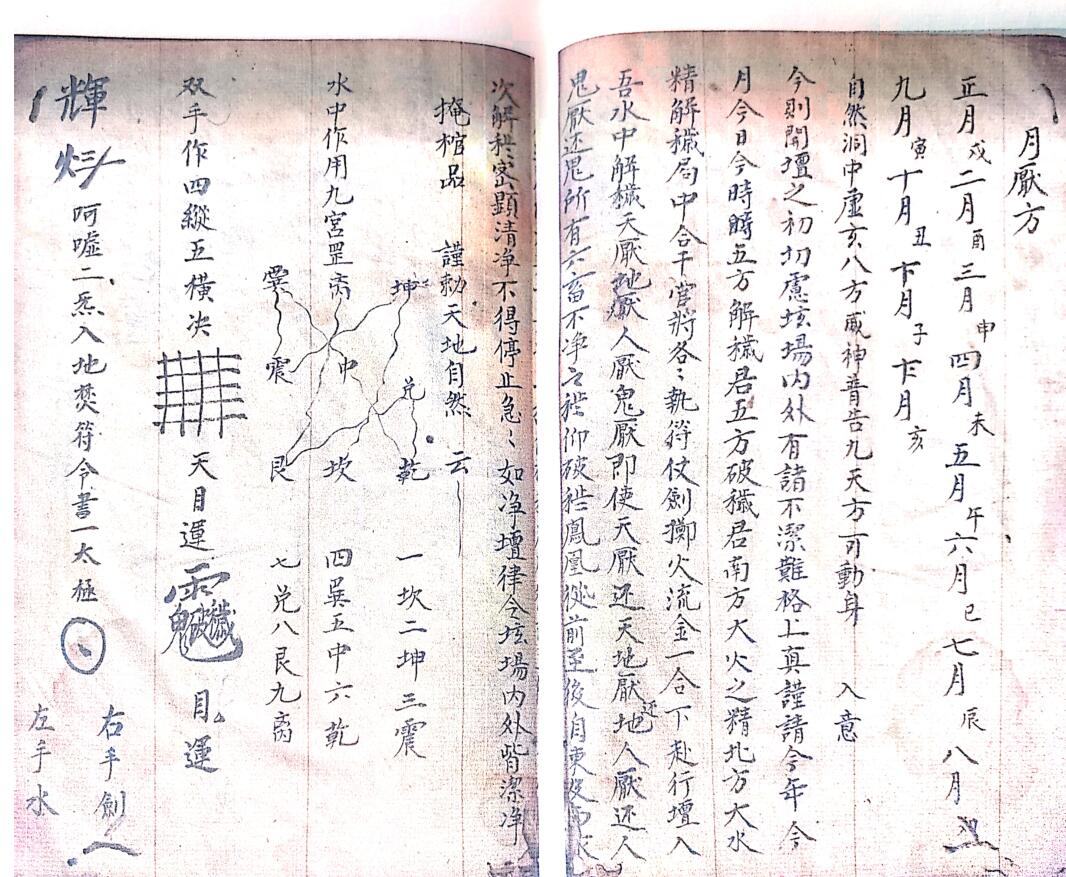 月厭方
正月戌二月酉三月申四月未五月午六月巳七月辰八月
九月寅十月丑𠄏月子𠄐月亥
自然洞中虛玄八方威神普告九天方可動身 入意
今則開壇之初切慮坛場内外有諸不潔難格上真謹請今年今
月今日今時時五方解穢君五方破穢君南方大火之精北方大水
精解穢局中合干官將各〻執符仗劍擲火流金一合下赴行壇入
吾水中解穢天厭地厭人厭鬼厭即使天厭还天地厭还地人厭还人
鬼厭还鬼所有六畜不净之秽仰破秽鳳凰從前至後自東
次解秽〻密顯清净不得停止急〻如净壇律令坛場内外皆潔净
掩棺品 謹勅天地自然 云
水中作用九宮罡
巽 离 坤
震 中 兑
艮 坎 乾
一坎二坤三震
四巽五中六乾
七兑八艮九离
双手作四縱五橫决 天目運 目運
輝 呵噓二炁入地焚符令書一太極
右手劍
左手水